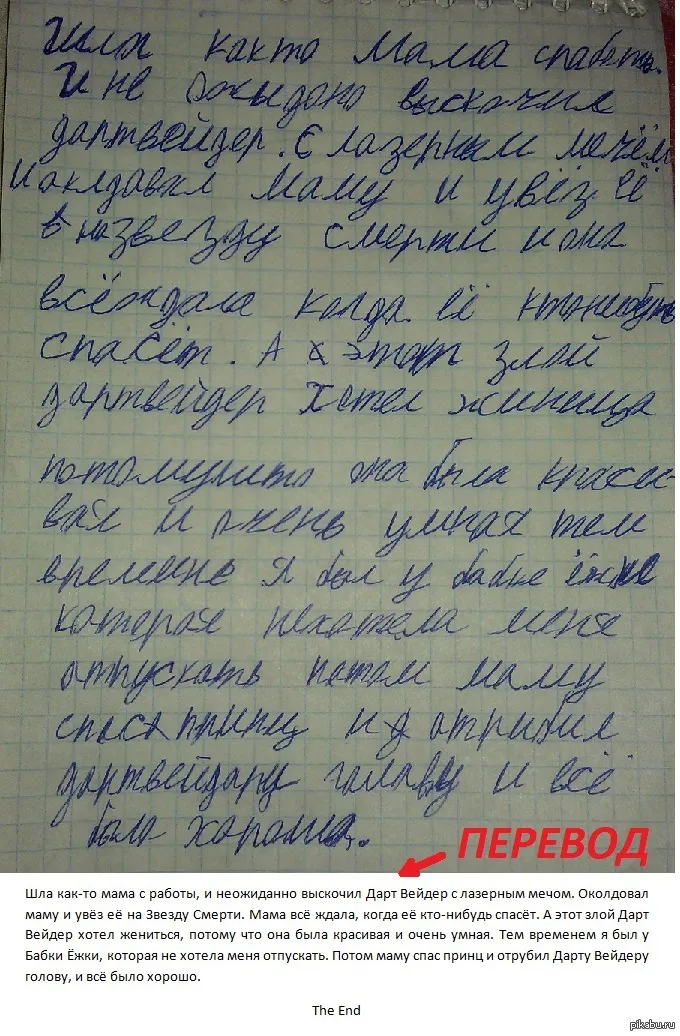 Шла както Мама спаботы.
И не ожыдоно выскочил
дартвейдер. С лазерным мечём
И аклдавал маму и увёз её
в назвезду смерти и она
всёждала когда её ктонебуть
спасёт. А этот злой
дартвейдер хотел жиница
потомушто она была краси-
вая и очень умная тем
времене я был у бабке ёжке
которая нехотела меня
отпускать потом маму
спас принц и отрибил
дартвейдару галаву и всё
было харошо.
ПЕРЕВОД
Шла как-то мама с работы, и неожиданно выскочил Дарт Вейдер с лазерным мечом. Околдовал
маму и увёз её на Звезду Смерти. Мама всё ждала, когда её кто-нибудь спасёт. А этот злой Дарт
Вейдер хотел жениться, потому что она была красивая и очень умная. Тем временем я был у
Бабки Ёжки, которая не хотела меня отпускать. Потом маму спас принц и отрубил Дарту Вейдеру
голову, и всё было хорошо.
The End
pikabu.ru